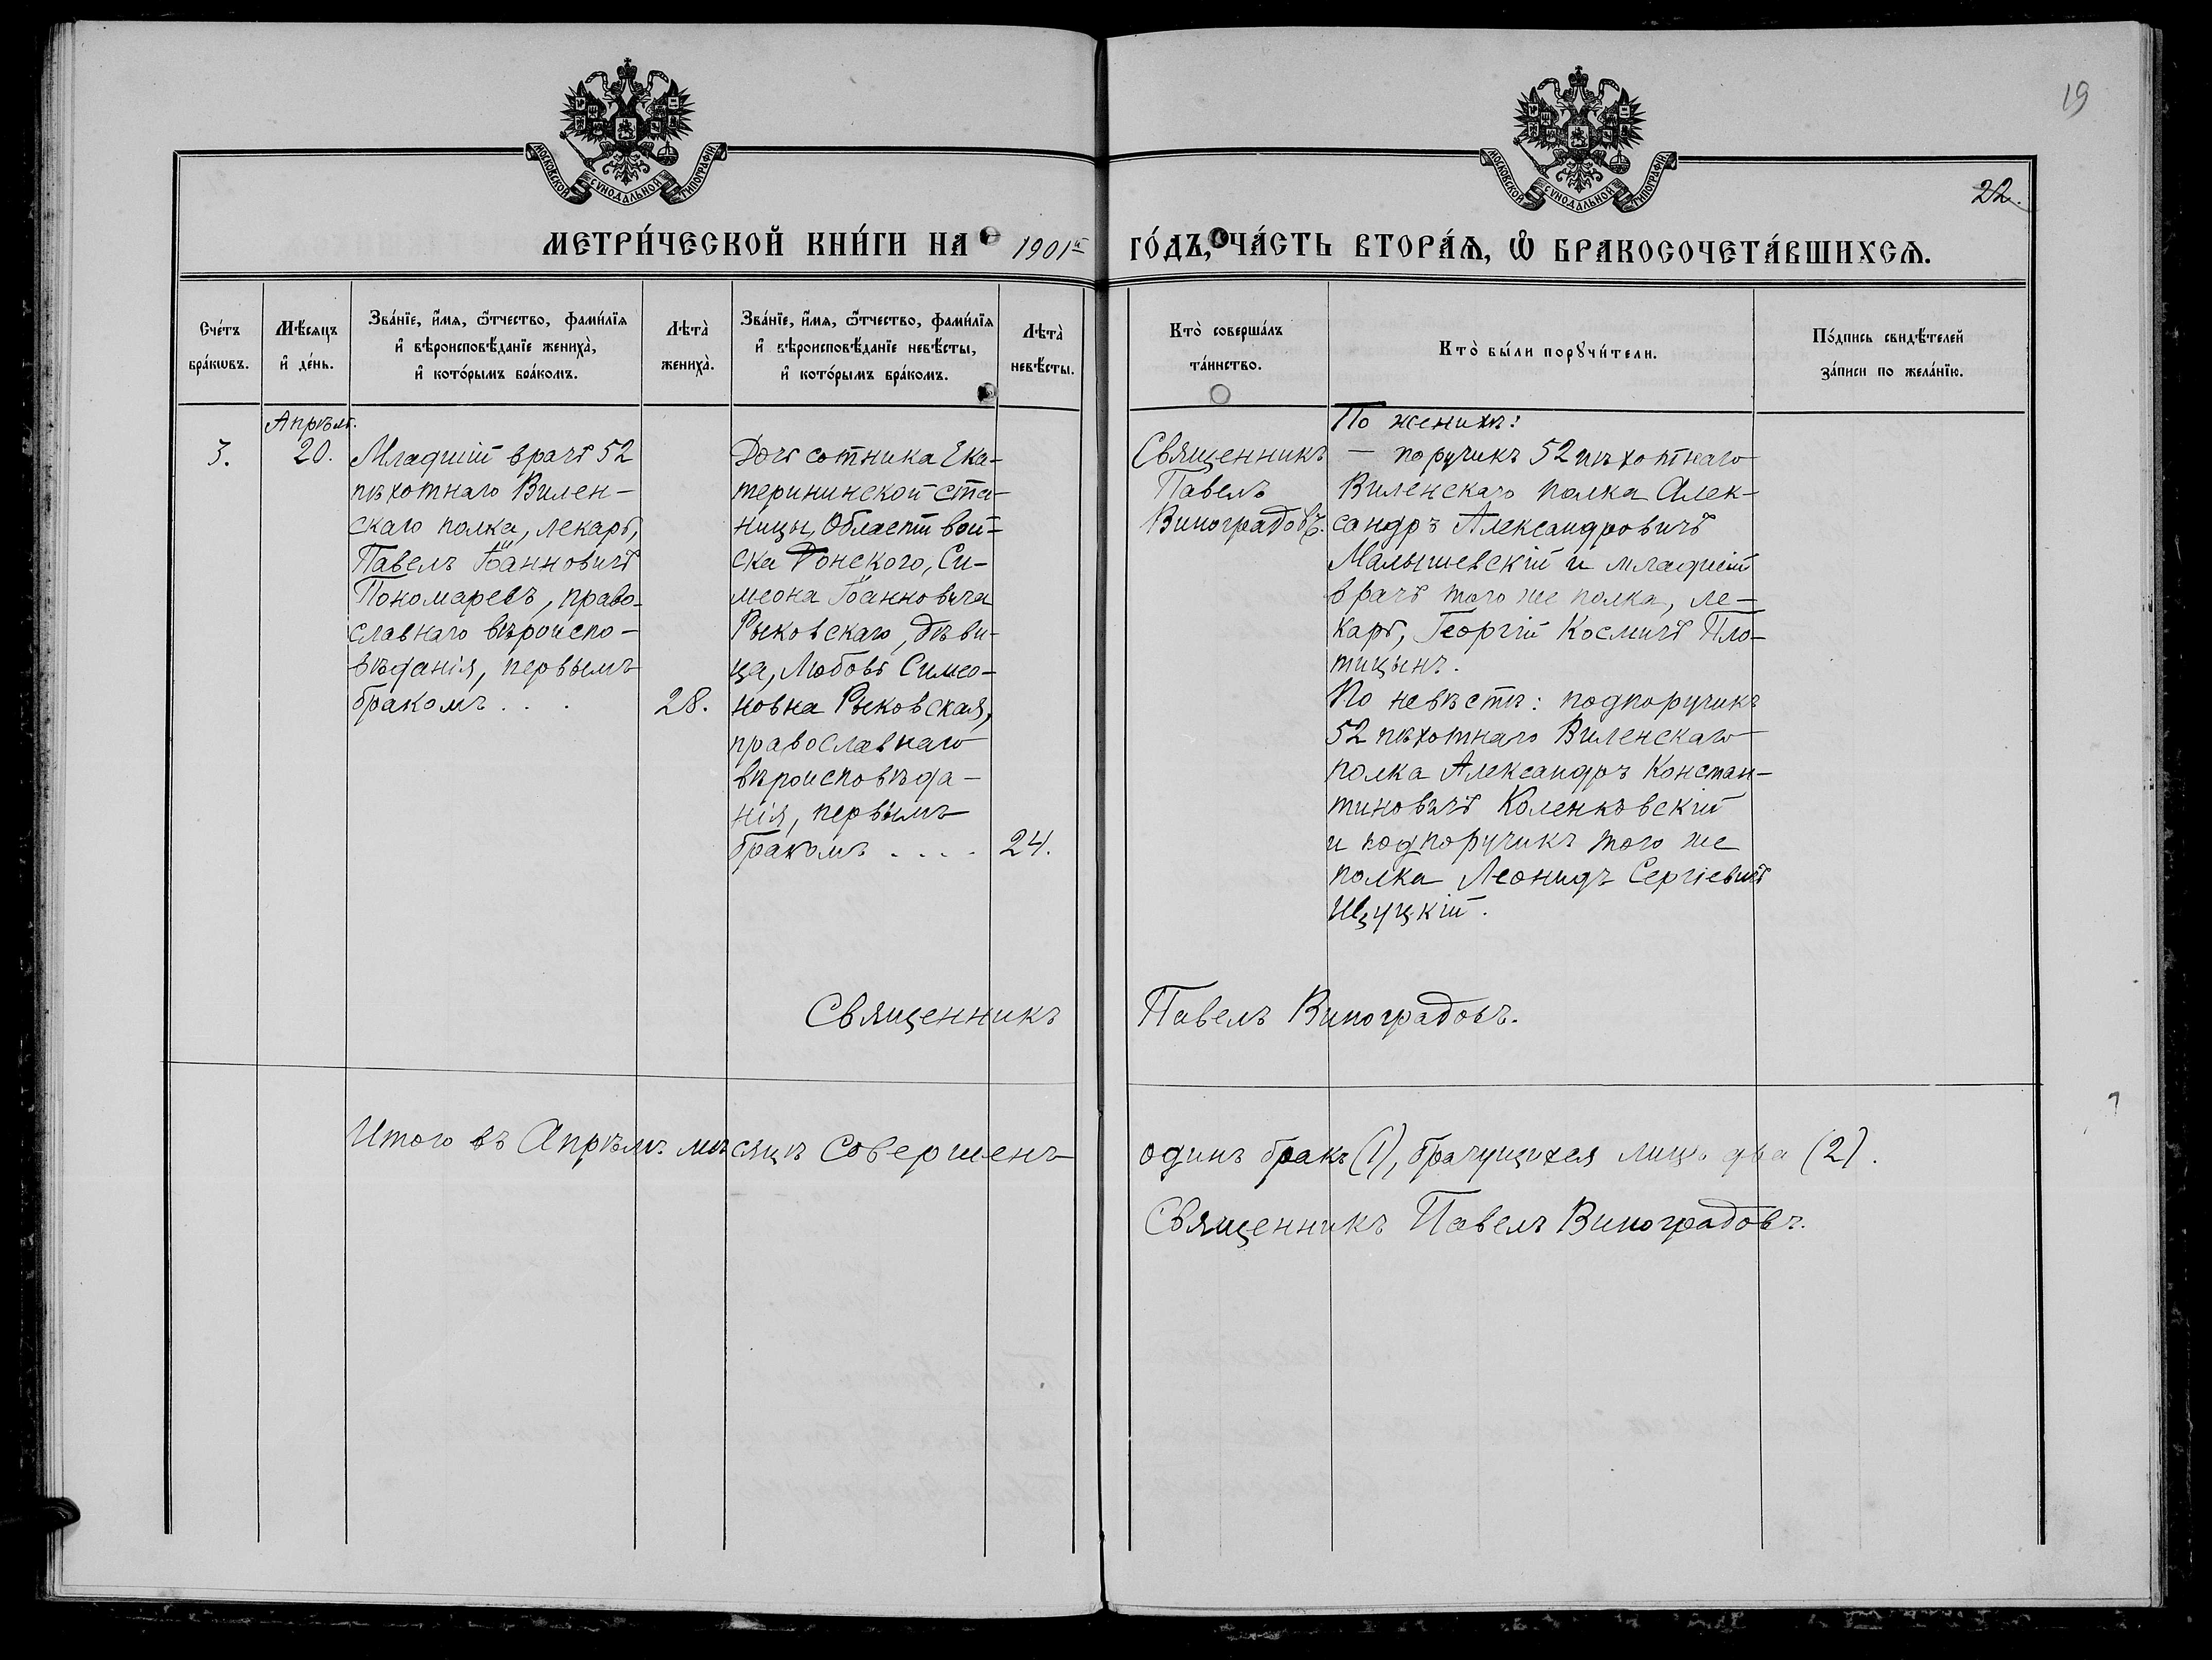 19
МОСКОВСКОЙ СѴНОДАЛЬНОЙ ТИПОГРАФІИ
МОСКОВСКОЙ СѴНОДАЛЬНОЙ ТИПОГРАФІИ
22.
МЕТРИ́ЧЕСКОЙ КНИ́ГИ НА 1901й
ГО́ДЪ, ЧА́СТЬ ВТОРА́Ѧ, Ѽ БРАКОСОЧЕТА́ВШИХСѦ.
Сче́тъ
бра́кѡвъ.
Мѣ́сяцъ
и҆ де́нь.
Зва́нїе, и҆́мя, ѻ҆́тчество, фами́лїя
и҆ вѣроисповѣ́данїе жениха̀,
и҆ кото́рымъ бра́комъ.
Лѣта̀
жениха̀.
Зва́нїе, и҆́мя, ѻ҆́тчество, фами́лїя
и҆ вѣроисповѣ́данїе невѣ́сты,
и҆ кото́рымъ бра́комъ.
Лѣта̀
невѣ́сты.
Кто̀ соверша́лъ
та́инство.
Кто̀ бы́ли порꙋчи́тели.
По́дпись свидѣ́телей
за́писи по жела́нїю.
3.
Апрѣль.
20.
Младшій врачъ 52
пѣхотнаго Вилен-
скаго полка, лекарь,
Павелъ Іоанновичъ
Пономаревъ, право-
славнаго вѣроиспо-
вѣданія, первымъ
бракомъ . . .
28.
Дочь сотника Ека-
терининской ста-
ницы, Области вой-
ска Донского, Си-
меона Іоанновича
Рыковскаго, дѣви-
ца, Любовь Симео-
новна Рыковская,
православнаго
вѣроисповѣда-
нія, первымъ
бракомъ . . . .
24.
Священникъ
Павелъ
Виноградовъ.
По женихѣ:
— поручикъ 52 пѣхотнаго
Виленскаго полка Алек-
сандръ Александровичъ
Малышевскій и младшій
врачъ того же полка, ле-
карь, Георгій Космичъ Пло-
тицынъ.
По невѣстѣ: подпоручикъ
52 пѣхотнаго Виленскаго
полка Александръ Констан-
тиновичъ Коленковскій
и подпоручикъ того же
полка Леонидъ Сергіевичъ
Щуцкій.
Священникъ Павелъ Виноградовъ.
Итого въ Апрѣлѣ мѣсяцѣ совершенъ одинъ бракъ (1), брачущихся лицъ два (2).
Священникъ Павелъ Виноградовъ.